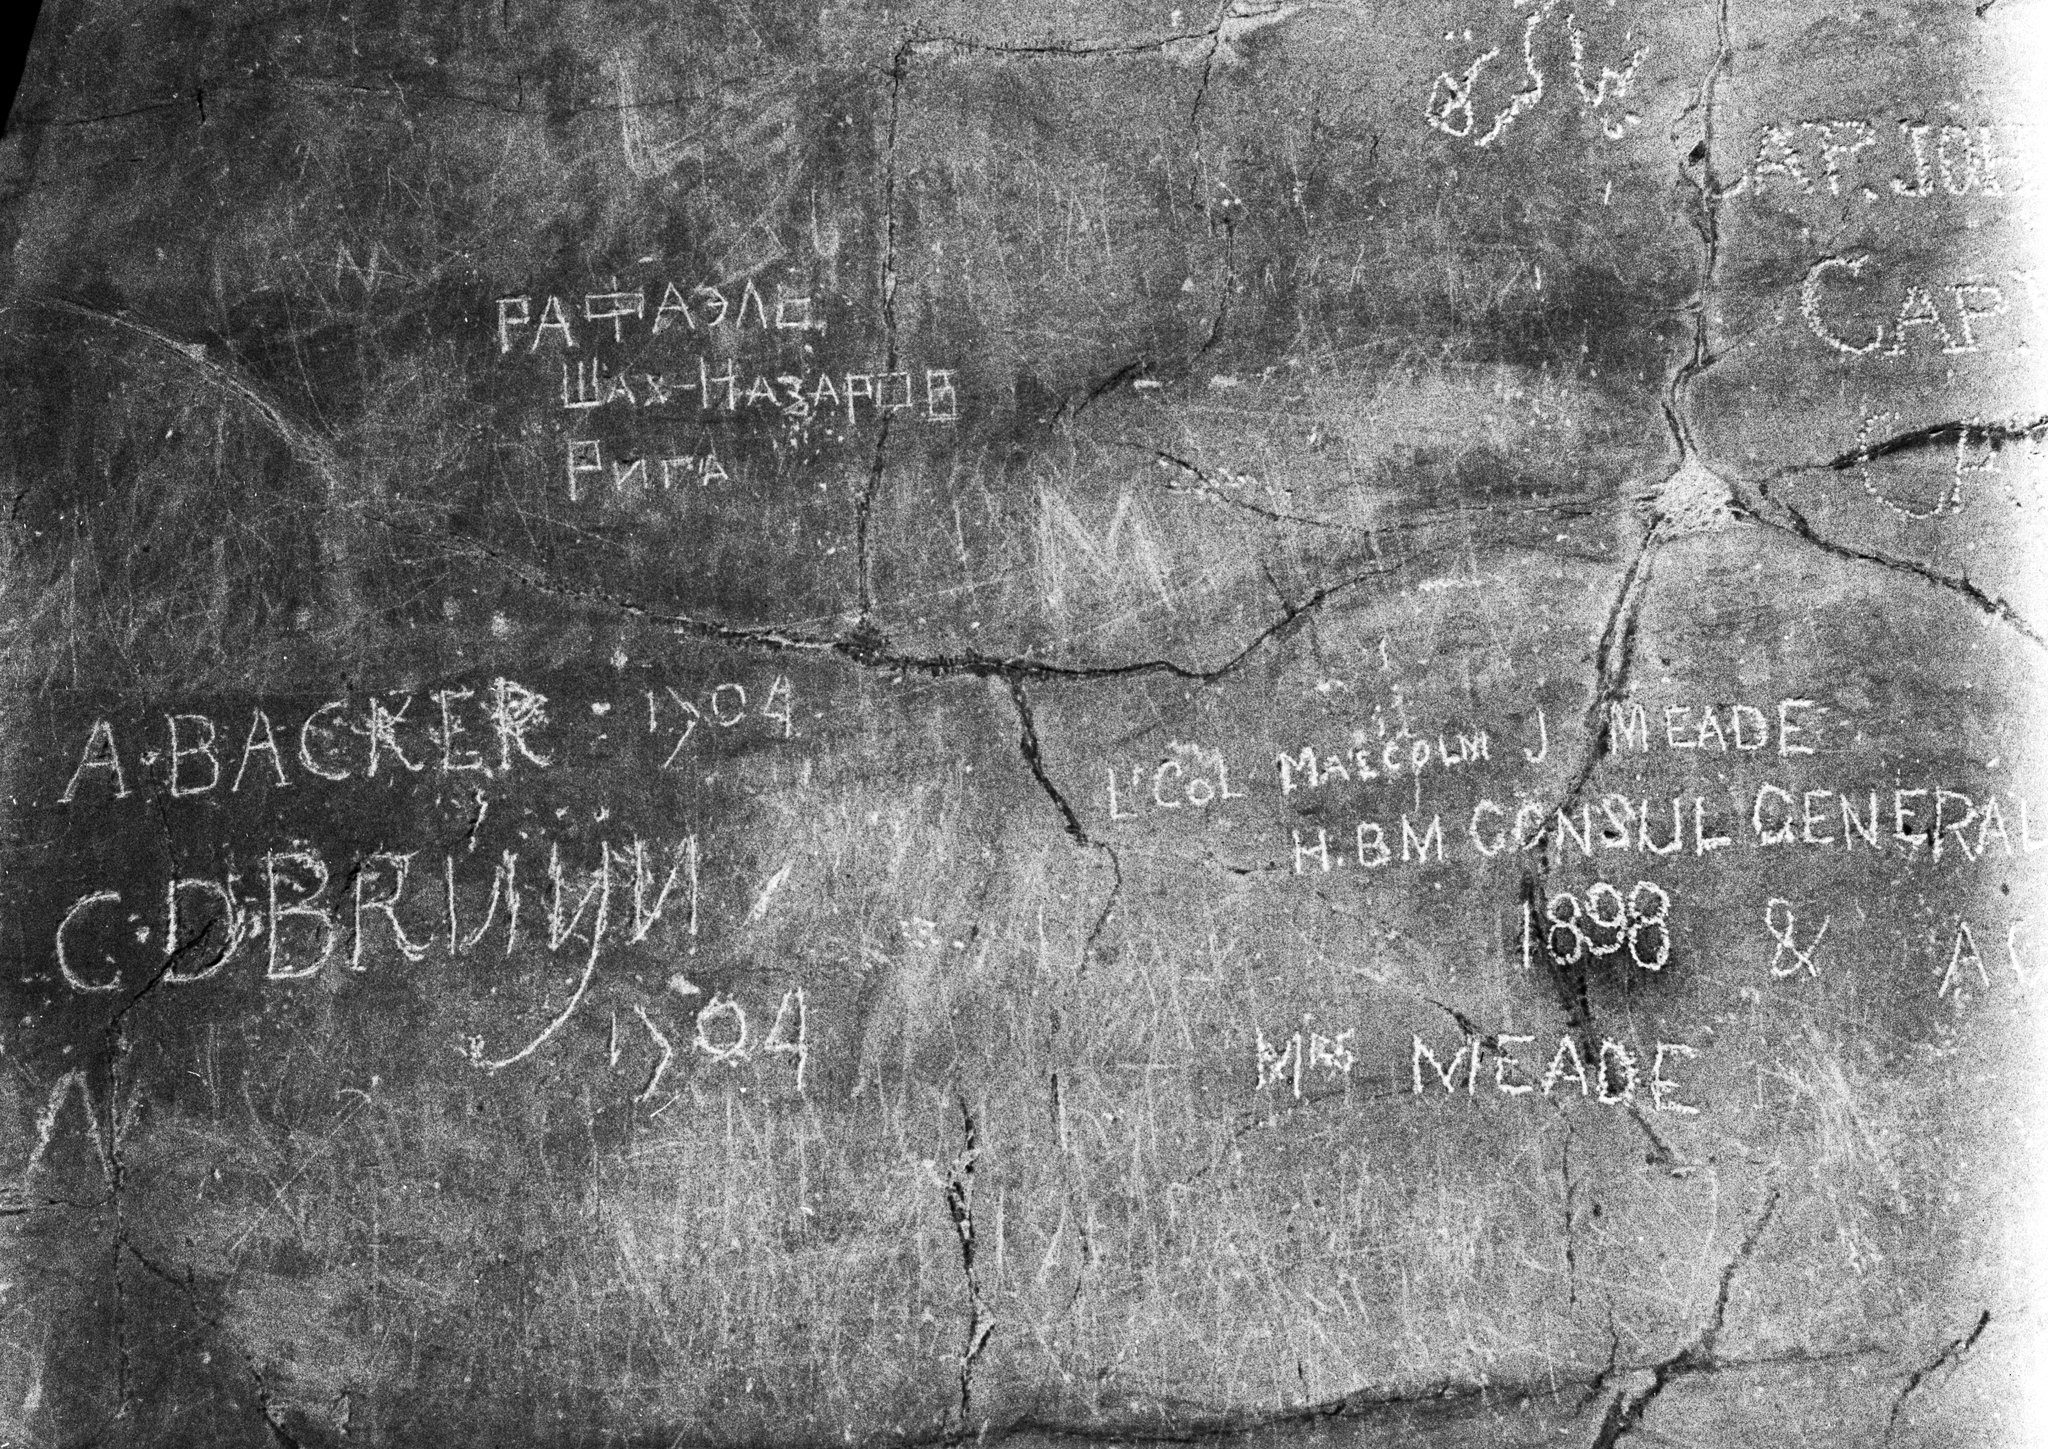 CAP. JOH
РАФАЭЛО
ШАХ-НАЗАРОВ
РИГА
CAP
M
A. BACKER. 1904
C. D. BRUIJN
1904
Lᵗ COL MALCOLM J MEADE
H.B M CONSUL GENERAL
1898 &
Mʀs MEADE